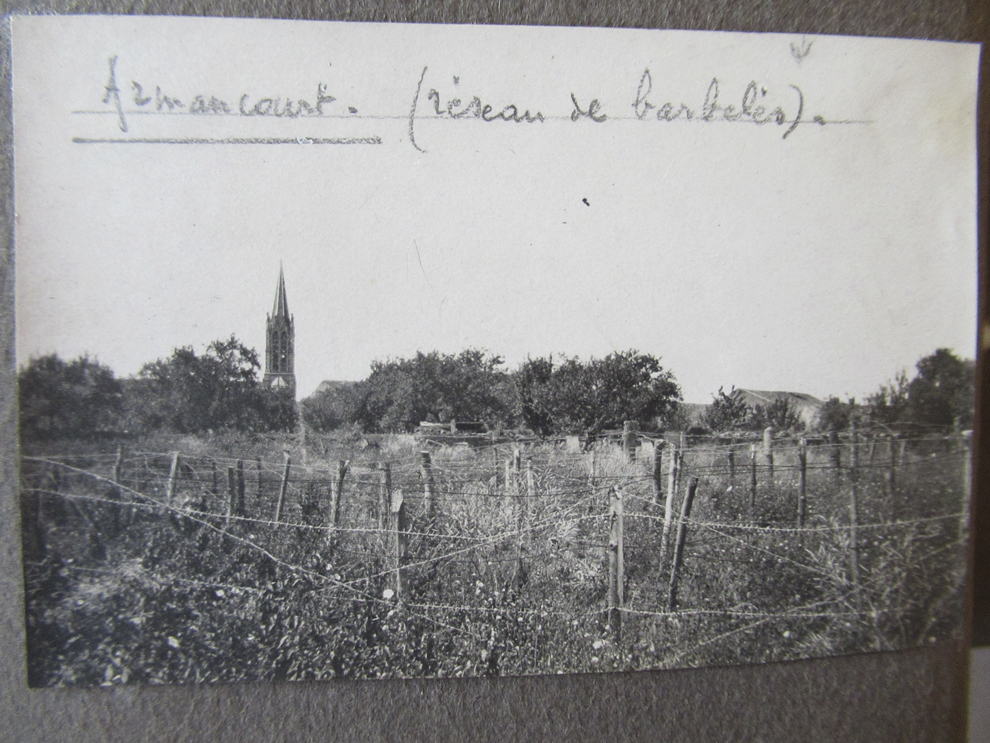 Armancourt. (réseau de barbelés).